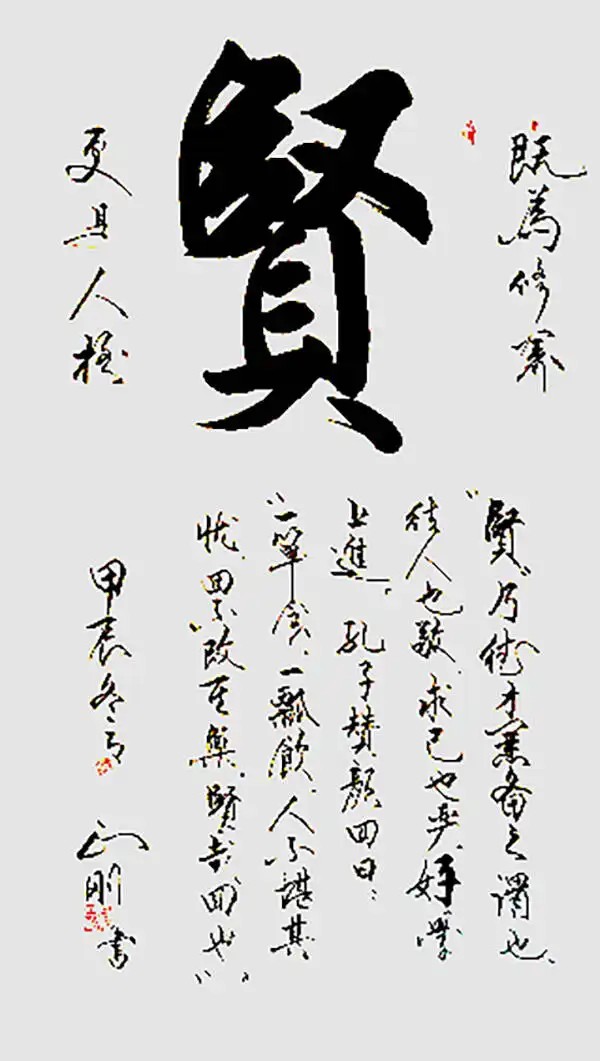 既為修
賢
更具人
"賢"乃德才兼备之謂也、
待人也敬、求己也、好學
上進。孔子贊顏回曰：
"一簞食、一瓢飲、人不堪其
忧、回不改其樂、賢哉、回也"。
甲辰冬月
剛書